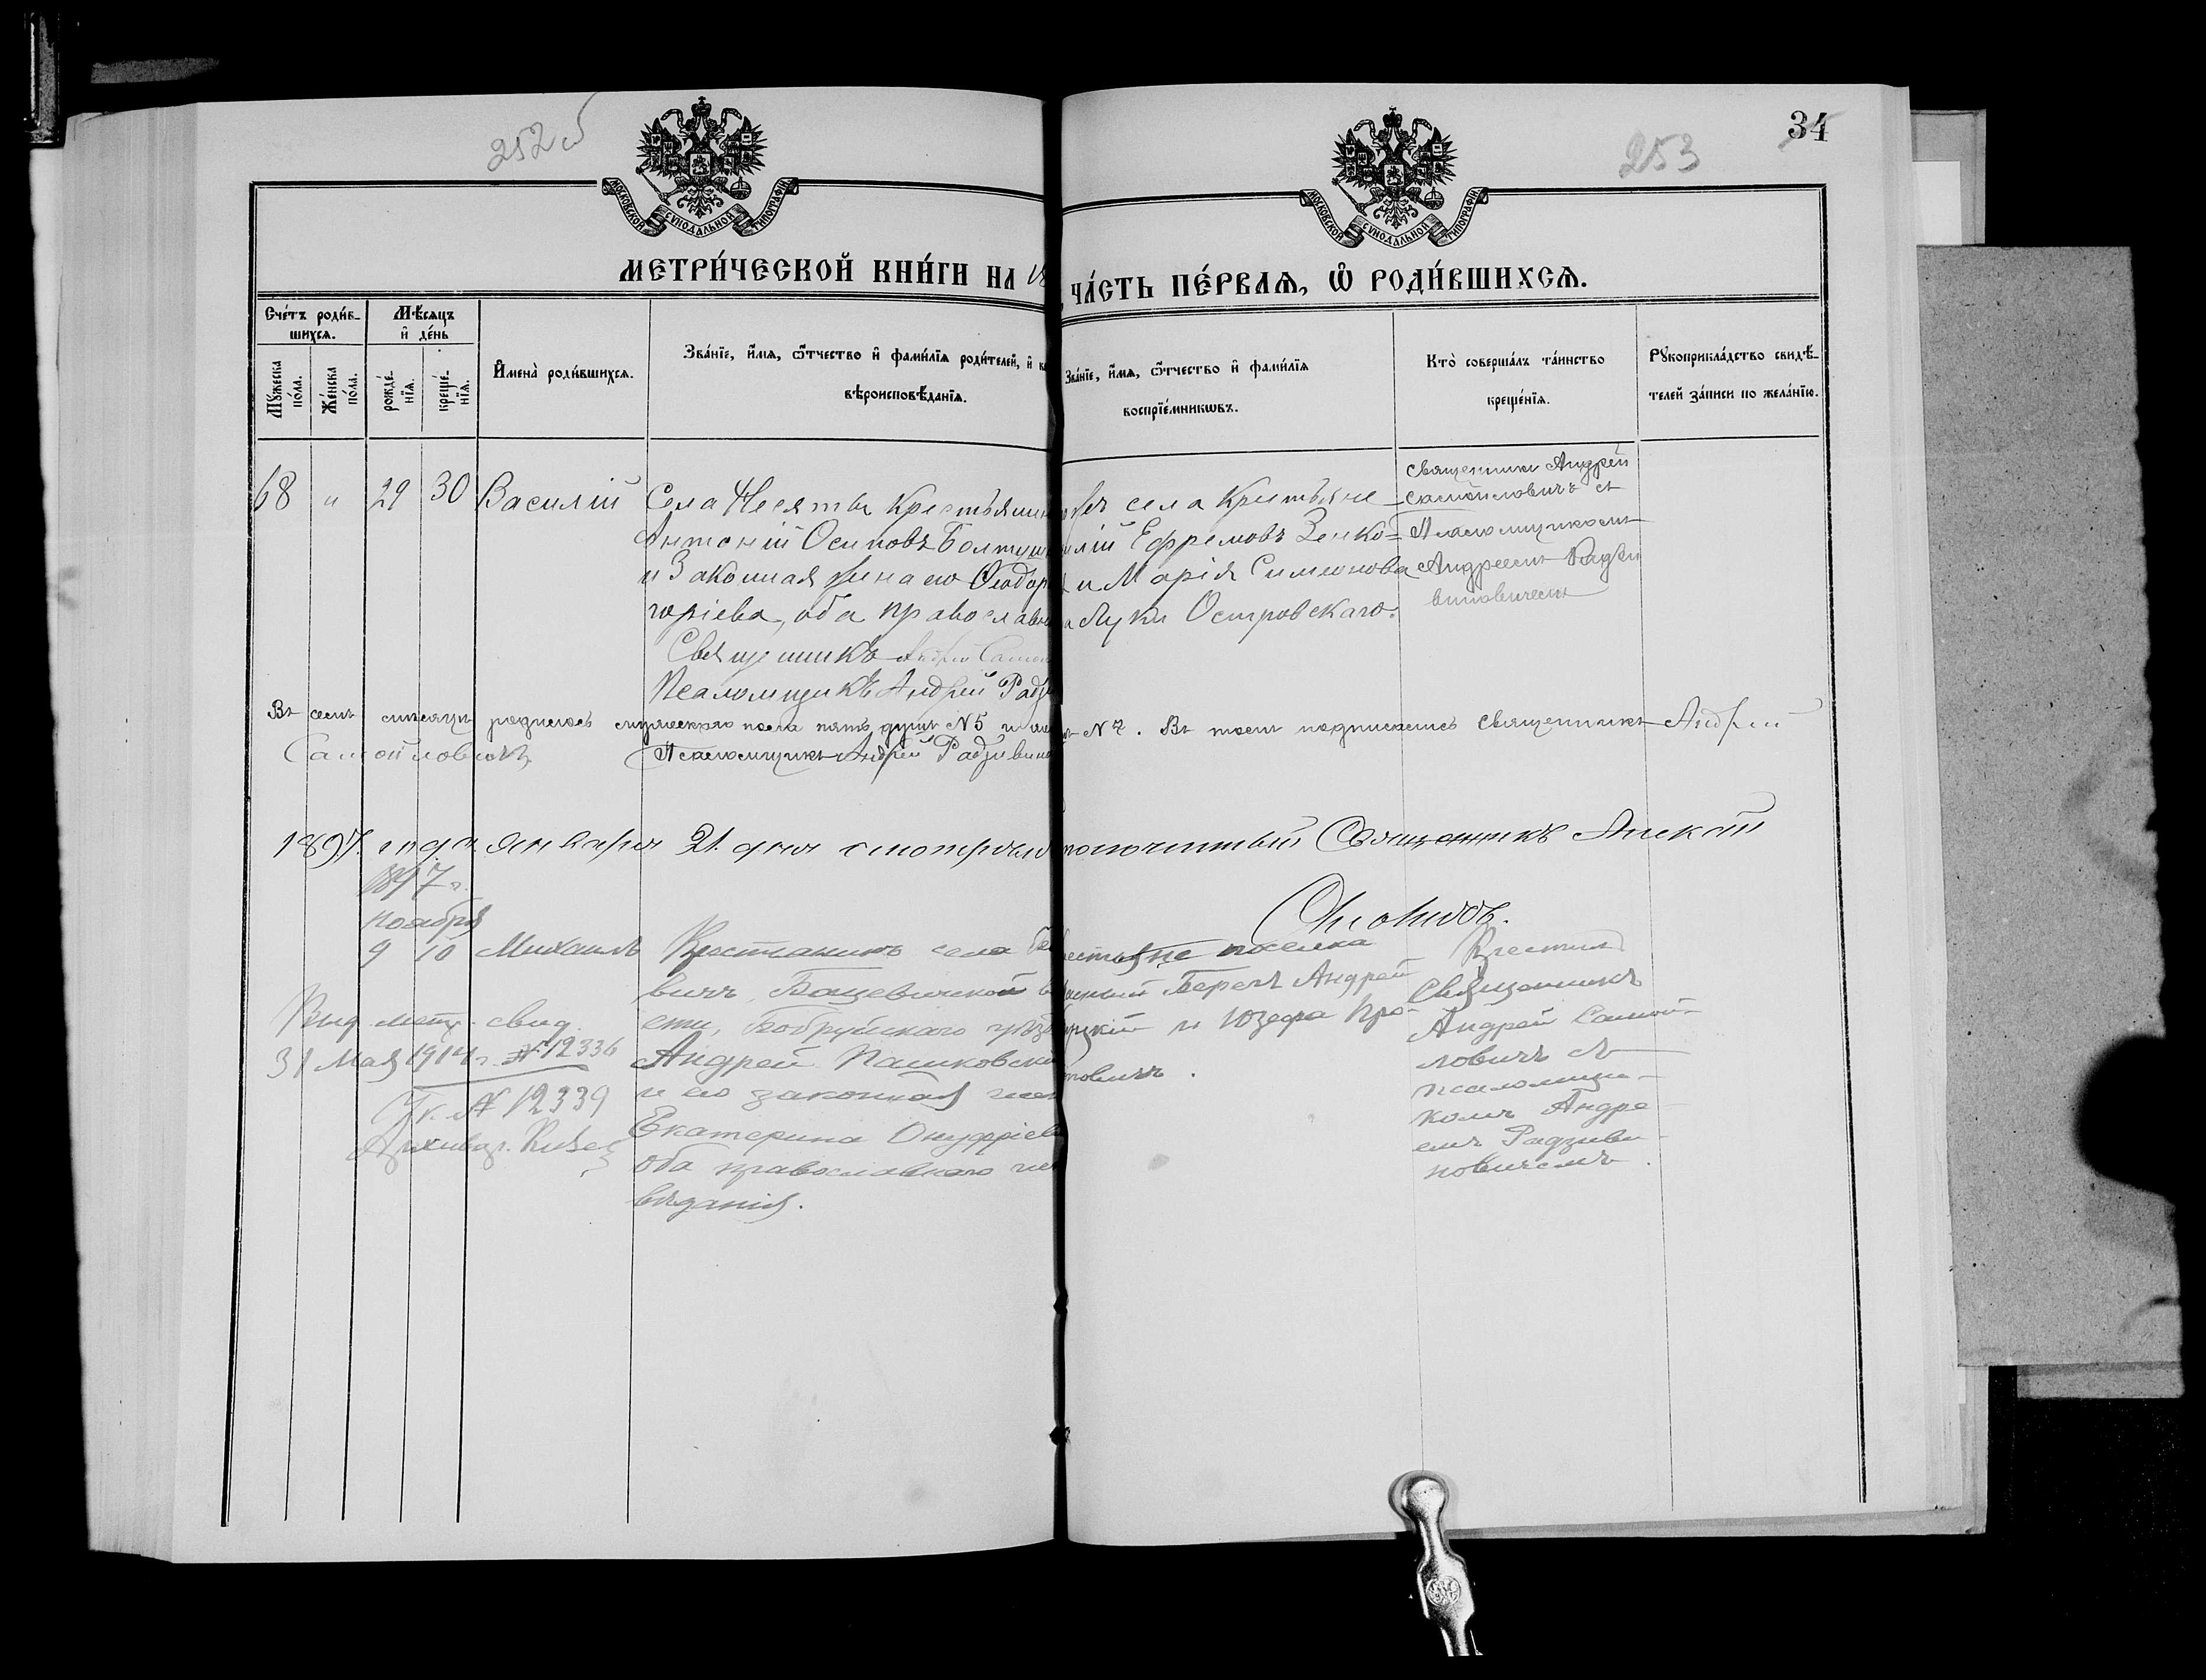 252 об
253
34
МОСКОВСКОЙ СѴНОДАЛЬНОЙ ТИПОГРАФІИ
МОСКОВСКОЙ СѴНОДАЛЬНОЙ ТИПОГРАФІИ
МЕТРИ́ЧЕСКОЙ КНИ́ГИ НА 18
ЧА́СТЬ ПЕ́РВАѦ, Ѽ РОДИ́ВШИХСѦ.
Сче́тъ роди́в-
шихсѧ.
Мѣ́сѧцъ
и҆ де́нь
Мꙋ́жеска
по́ла.
Же́нска
по́ла.
рожде́-
нїѧ.
креще́-
нїѧ.
И҆мена̀ роди́вшихсѧ.
Зва́нїе, и҆́мѧ, ѻ҆́тчество и҆ фами́лїѧ роди́телей, и҆ ка
вѣроисповѣ́данїѧ.
Зва́нїе, и҆́мѧ, ѻ҆́тчество и҆ фами́лїѧ
воспрїе́мникѡвъ.
Кто̀ соверша́лъ та́инство
креще́нїѧ.
Рꙋкоприкла́дство свидѣ́-
телей за́писи по жела́нїю.
68 " 29 30 Василій
Села Несяты Крестьянин
Антоній Осиповъ Болтуш
и Законная жена его Ѳеодор
горіева, оба православн
Священникъ Андрей Самой
Псаломщикъ Андрей Радз
села Крестьяне
илій Ефремовъ Зенко-
и Марія Симеонова
Луки Островскаго.
Священникъ Андрей
Самойловичъ съ
Псаломщикомъ
Андреемъ Радзи
виновичемъ
Въ семъ месяце родилось мужескаго пола пять душъ №5 и
№7. Въ томъ подписаемся Священникъ Андрей
Самойловичъ
Псаломщикъ Андрей Радзивино
1897. года Января 21. дня смотрелъ
Священникъ
1897 г.
ноября
9 10 Михаилъ
Крестьянинъ села Ба
вичъ, Бацевичской в
сти, Бобруйскаго уѣзд
Андрей Пашковскі
и его законная жен
Екатерина Онуфріева
оба православнаго ис
вѣданія.
естьяне поселка
Берегъ Андрей
и Юзефа Про-
повичъ.
Крестилъ
Священникъ
Андрей Самой-
ловичъ съ
псаломщи-
комъ Андре
емъ Радзиви-
новичемъ.
Выд. метр. свид.
31 Мая 1914 г. № 12336
№ 12339